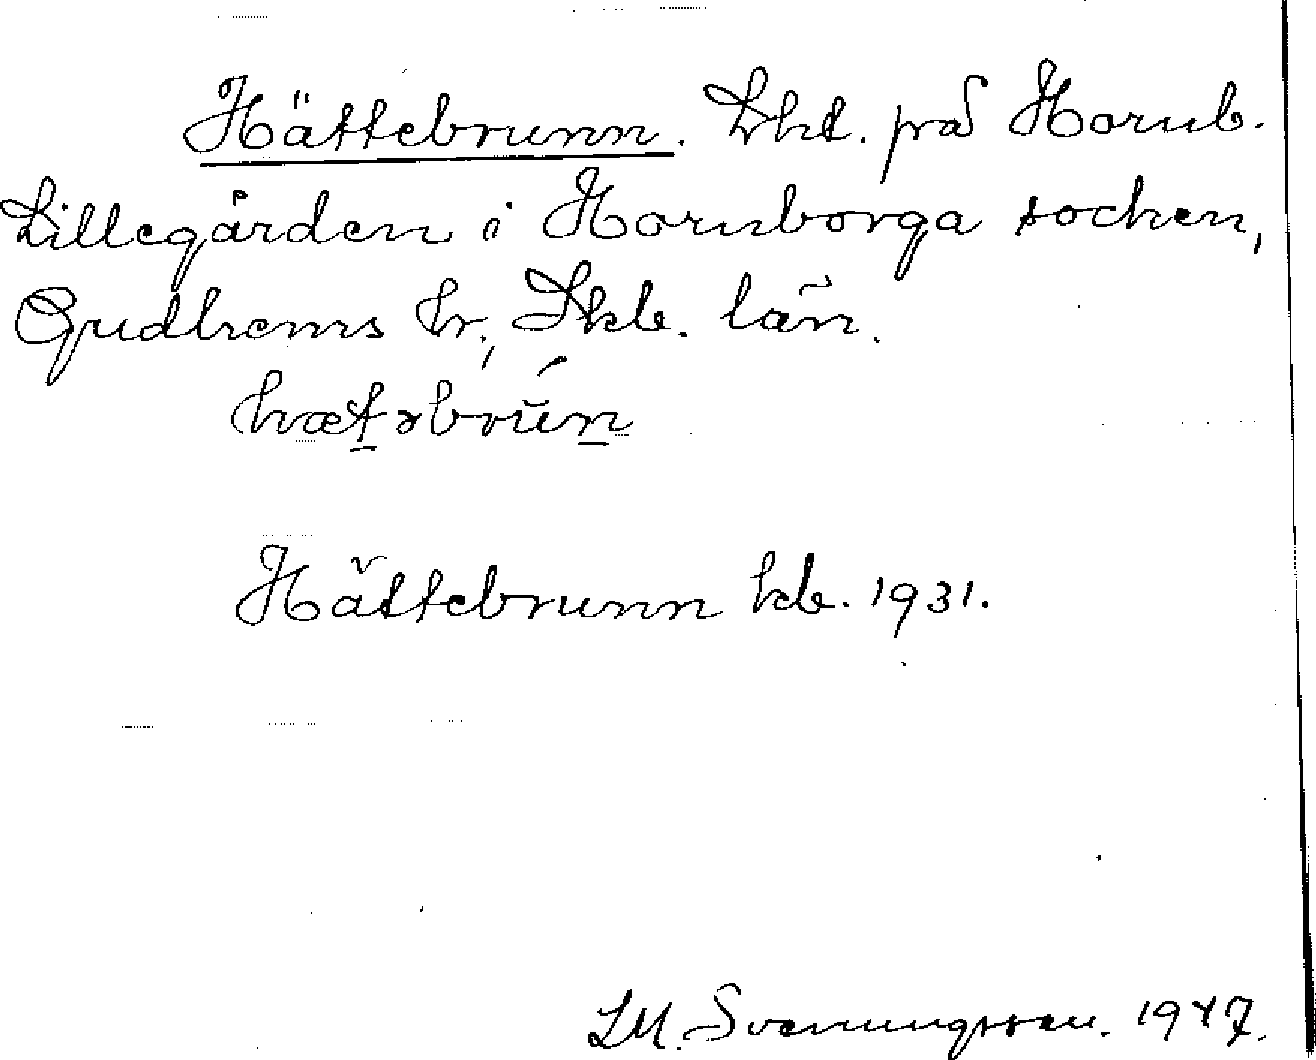 Hättebrunn. Lht. på Hornb.
Lillegården i Hornborga socken,
Gudhems hr, Skb. län.
hætəbrun
Hättebrunn kb. 1931.
Svenungsson. 1947.